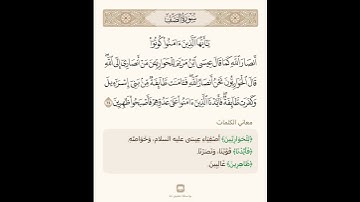 سُورَةُ الصَّفِّ
يَٰٓأَيُّهَا ٱلَّذِينَ ءَامَنُوا۟ كُونُوٓا۟
أَنصَارَ ٱللَّهِ كَمَا قَالَ عِيسَى ٱبْنُ مَرْيَمَ لِلْحَوَارِيِّـۧنَ مَنْ أَنصَارِىٓ إِلَى ٱللَّهِ
قَالَ ٱلْحَوَارِيُّونَ نَحْنُ أَنصَارُ ٱللَّهِ فَـَٔامَنَت طَّآئِفَةٌ مِّنۢ بَنِىٓ إِسْرَٰٓءِيلَ
وَكَفَرَت طَّآئِفَةٌ فَأَيَّدْنَا ٱلَّذِينَ ءَامَنُوا۟ عَلَىٰ عَدُوِّهِمْ فَأَصْبَحُوا۟ ظَٰهِرِينَ ١٤
معاني الكلمات
﴿لِلْحَوَارِيِّينَ﴾ أَصْفِيَاءِ عِيسَى عليه السلام، وَخَوَاصِّهِ.
﴿فَأَيَّدْنَا﴾ قَوَّيْنَا، وَنَصَرْنَا.
﴿ظَاهِرِينَ﴾ غَالِبِينَ.